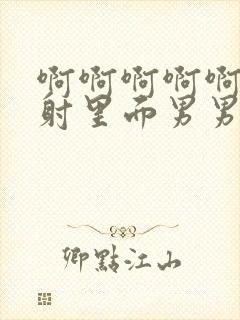 啊啊啊啊啊
射里而男男
卿點江山